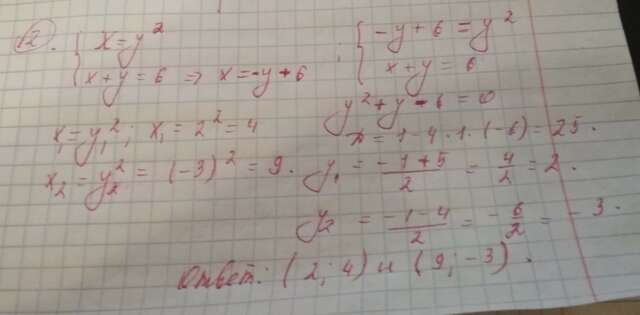 12. { x = y²
x + y = 6 => x = -y + 6
; { -y + 6 = y²
x + y = 6
y² + y - 6 = 0
D = 1 - 4·1·(-6) = 25.
x₁ = y₁²; x₁ = 2² = 4
x₂ = y₂² = (-3)² = 9.
y₁ = (-1+5)/2 = 4/2 = 2.
y₂ = (-1-4)/2 = -6/2 = -3.
Ответ: (2; 4) и (9; -3).